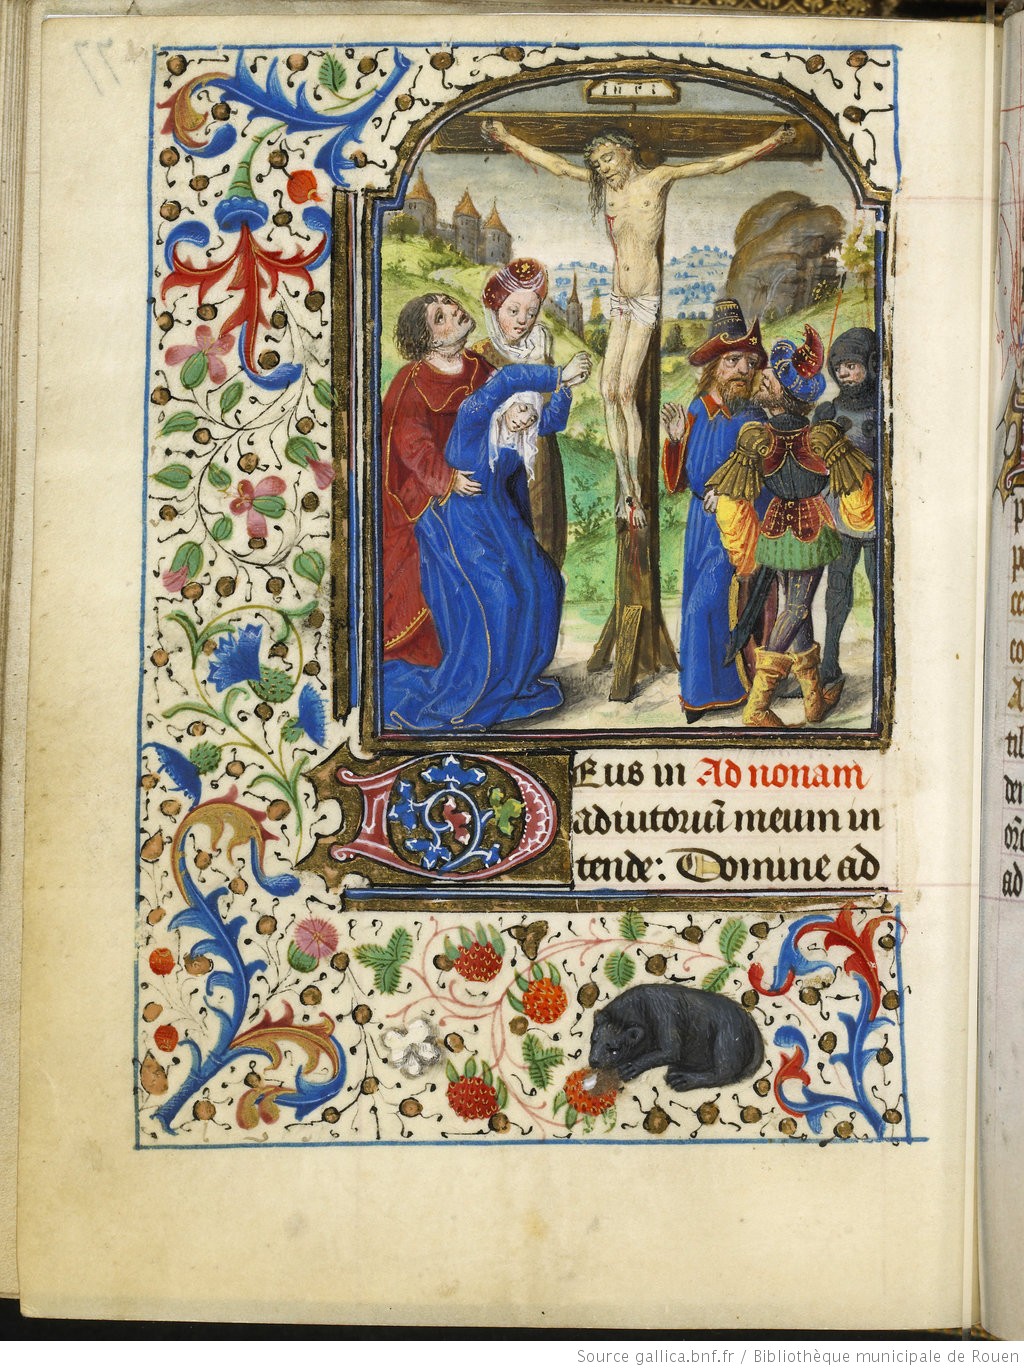 77
inri
Deus in Ad nonam
adiutoriū meum in
tende: Domine ad
Source gallica.bnf.fr / Bibliothèque municipale de Rouen